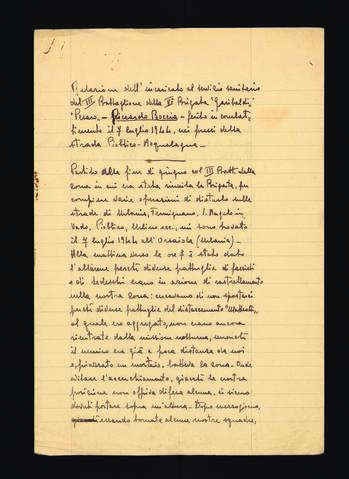 Relazione dell'incaricato al servizio sanitario
del III Battaglione della V Brigata "Garibaldi"
"Pesaro" - Riccardo Boccia - ferito in combat-
timento il 7 luglio 1944, nei pressi della
strada Piobbico - Acqualagna -
Partito alla fine di giugno col III Batt. dalla
zona in cui era stata riunita la Brigata, per
compiere varie operazioni di disturbo sulle
strade di Urbania, Fermignano, S. Angelo in
Vado, Piobbico, Urbino ecc., mi sono trovato
il 7 luglio 1944 all'Orsaiola (Urbania) -
Alla mattina verso le ore 8 è stato dato
l'allarme perché diverse pattuglie di fascisti
e di tedeschi erano in azione di rastrellamento
nella nostra zona: cercavamo di non spostarsi
perché diverse pattuglie del distaccamento
al quale ero aggregato, non erano ancora
rientrate dalla missione notturna, nonostante
il nemico era già a poca distanza da noi
e, piazzato un mortaio, batteva la zona. Onde
evitare l'accerchiamento, giacché la nostra
posizione non offriva difesa alcuna, ci siamo
dovuti portare sopra un'altura. Dopo mezzogiorno,
essendo tornate alcune nostre squadre,